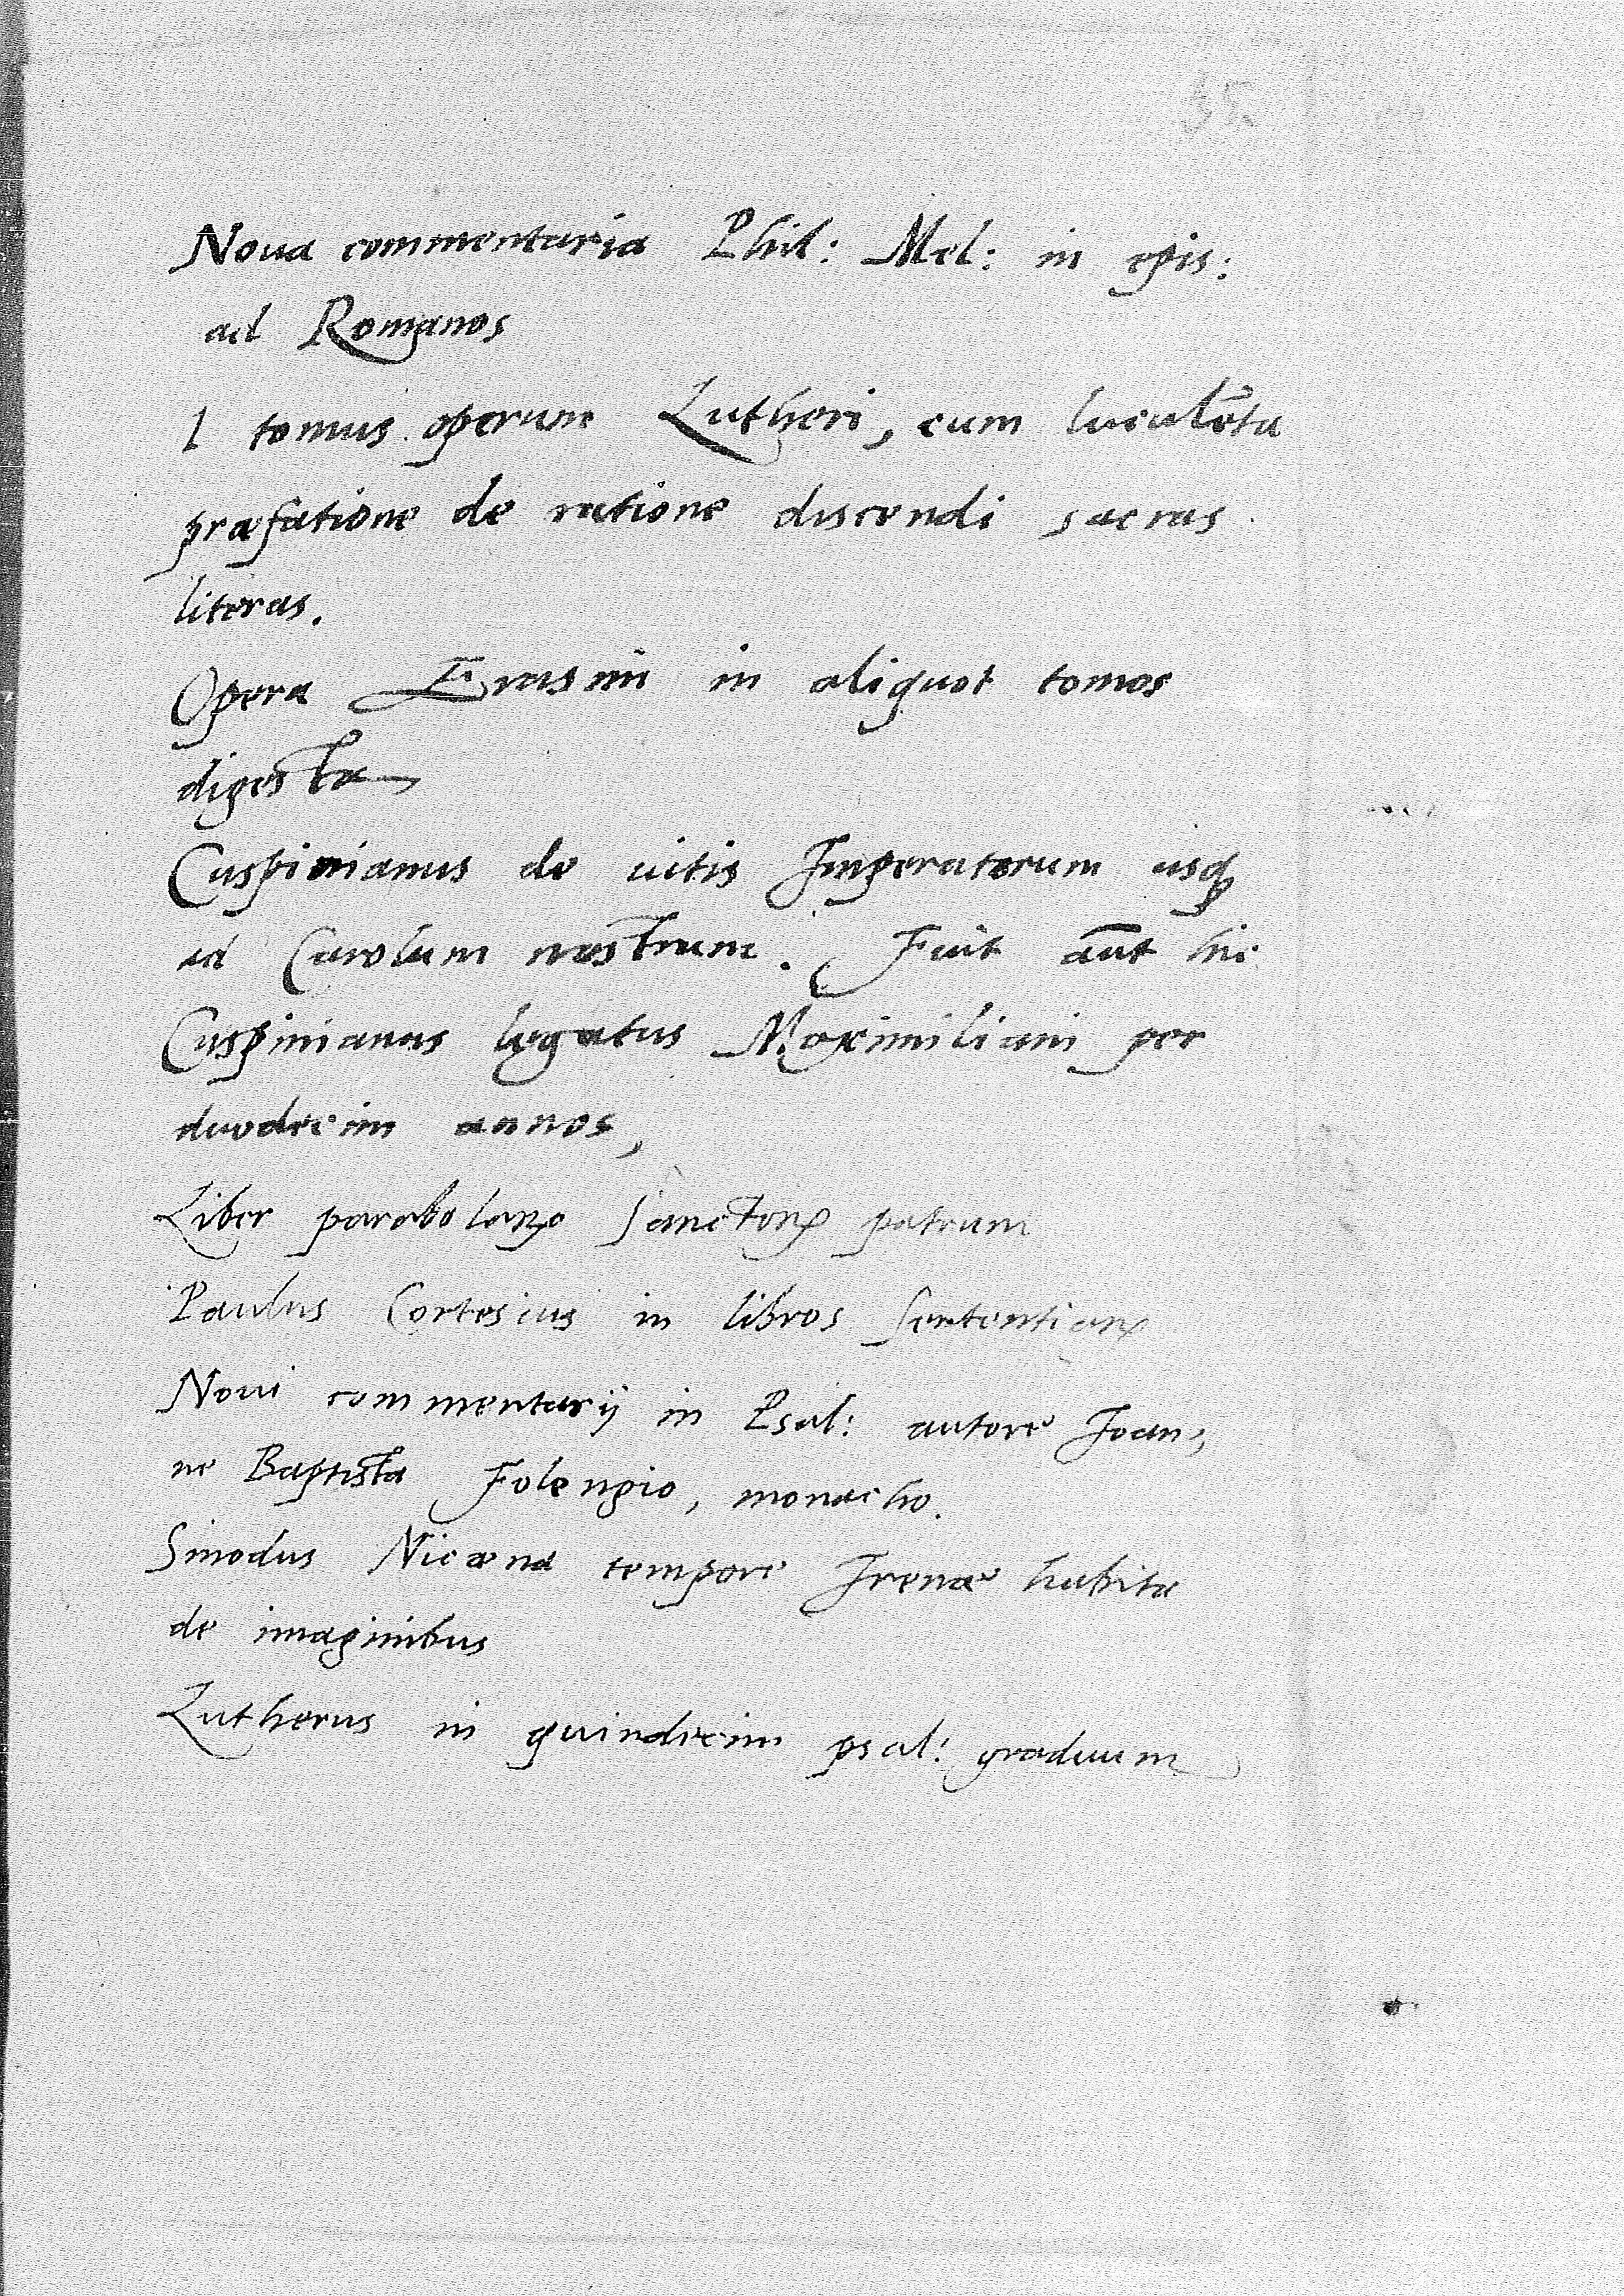 55
Noua commentaria Phil: Mel: in epis:
ad Romanos
1 tomus operum Lutheri, cum luculēta
præfatione de ratione discendi sacras
literas.
Opera Erasmi in aliquot tomos
digesta
Cuspinianus de uitis Imperatorum usqꝫ
ad Carolum nostrum. Fuit aūt hic
Cuspinianus legatus Maximiliani per
duodecim annos,
Liber parabolaꝝ Sanctoꝝ patrum
Paulus Cortesius in libros Sententiaꝝ
Noui commentarij in Psal: autore Joan,
ne Baptista Folengio, monacho.
Sinodus Nicæna tempore Irenæ habita
de imaginibus
Lutherus in quindecim psal: graduum